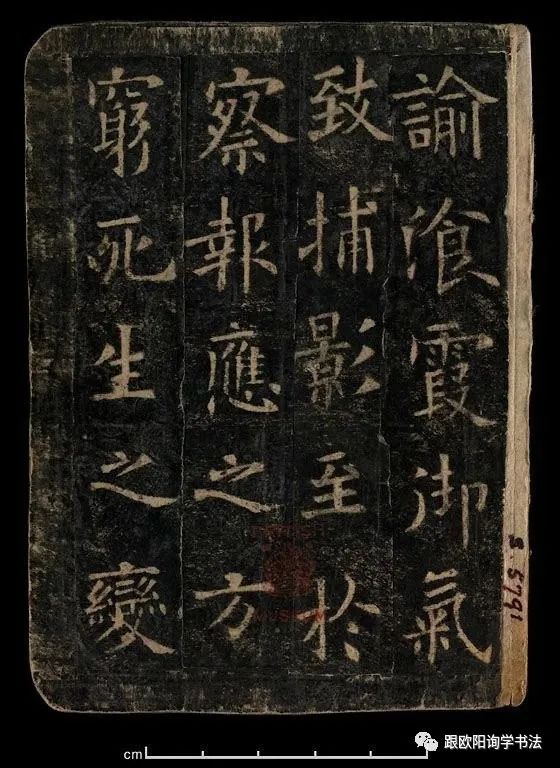 諭湌霞御氣
致捕影至於
察報應之方
窮死生之變
S 5791
cm
跟欧阳询学书法